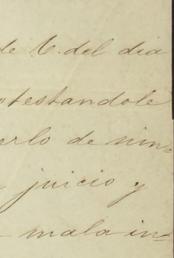 de V. del dia
otestandole
erlo de nin=
juicio y
mala in=